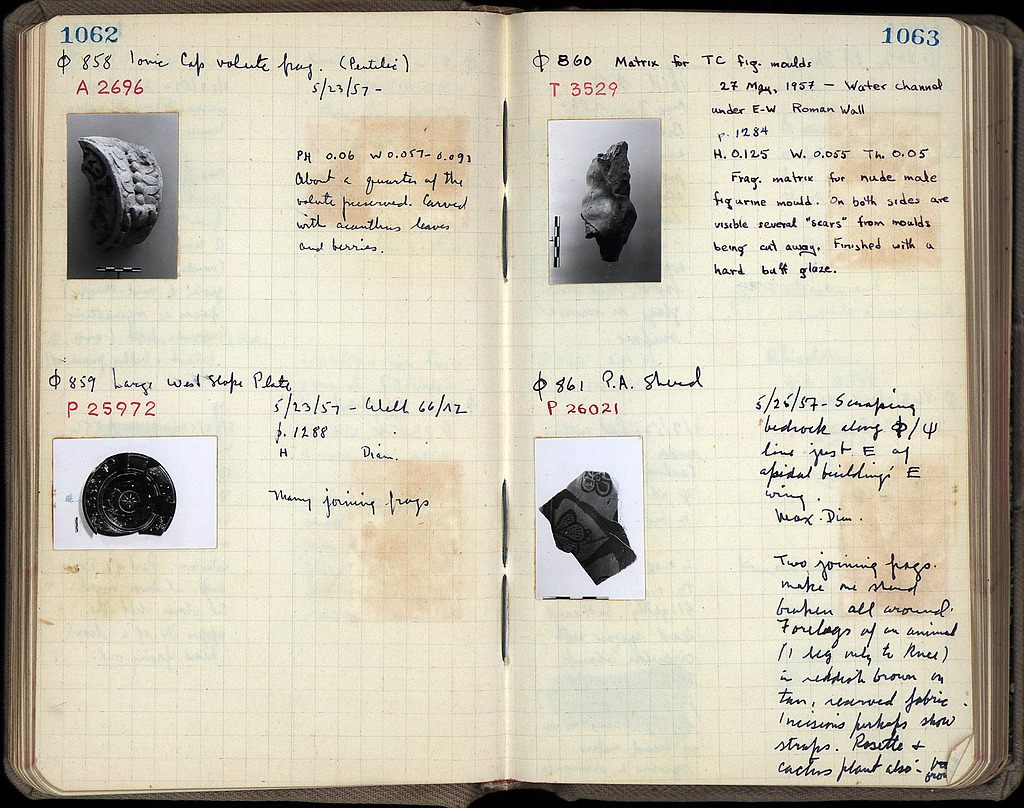 1062
Φ 858 Ionic Cap volute frag. (Pentelic)
A 2696
5/23/57 -
PH 0.06 W 0.057-0.093
About a quarter of the
volute preserved. Carved
with acanthus leaves
and berries.
Φ 859 Large West Slope Plate
P 25972
5/23/57 - Well 66/12
p. 1288
H Diam.
Many joining frags
1063
Φ 860 Matrix for TC fig. moulds
T 3529
27 May, 1957 - Water channel
under E-W Roman Wall
p. 1284
H. 0.125 W. 0.055 Th. 0.05
Frag. matrix for nude male
figurine mould. On both sides are
visible several "scars" from moulds
being cut away. Finished with a
hard buff glaze.
Φ 861 P.A. Sherd
P 26021
5/25/57 - Scraping
bedrock along Φ/Ψ
line just E of
apsidal building's E
wing.
Max. Dim.
Two joining frags.
make one sherd
broken all around.
Forelegs of an animal
(1 leg only to knee)
in reddish brown on
tan, reserved fabric.
Incisions perhaps show
straps. Rosette +
cactus plant also -